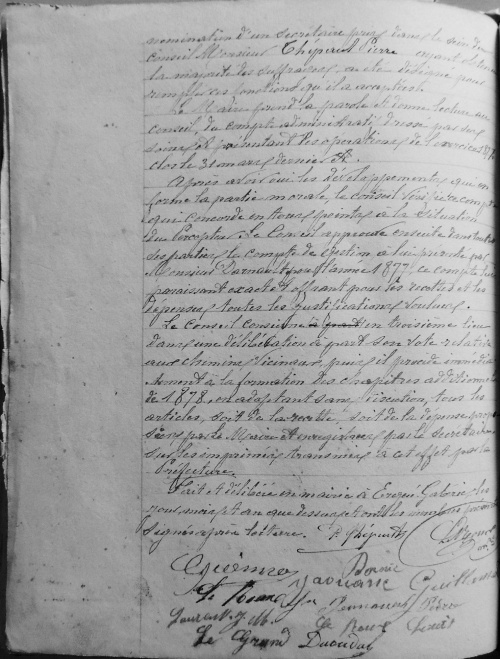 nomination d'un secrétaire pris dans le sein du
Conseil Monsieur Thépault Pierre ayant obtenu
la majorité des suffrages, a été désigné pour
remplir ces fonctions qu'il a acceptées.
Le Maire prend la parole et donne lecture au
Conseil, du compte administratif dressé par ses
soins et présentant les opérations de l'exercice 1877
clos le 31 mars dernier
Après avoir ouï les développements que
forme la partie morale, le Conseil
qui concorde en tous points à la situation
du Percepteur. Le Conseil approuve ensuite dans toutes
ses parties, le compte de gestion à lui présenté par
Monsieur pour l'année 1877, ce compte lui
paraissant exact et offrant pour les recettes et les
dépenses toutes les justifications voulues.
Le Conseil Consigne à part en troisième lieu
dans une délibération à part son vote relatif
aux chemins vicinaux, puis il procède immédia
tement à la formation des chapitres additionnels
de 1878, en adoptant sans exception, tous les
articles, soit de la recette, soit de la dépense propo
sés par le Maire et enregistrés par le secrétaire
sur les imprimés transmis à cet effet par la
Préfecture.
Fait et délibéré en mairie à Ergué-Gabéric, les
jour, mois et an que dessus et ont les membres présents
signé après lecture. P. Thépault
Guénno Bornic
Yaouanc Guillaume
Le Roux Pennanech Pierre
Le Roux Louis
Le Grand